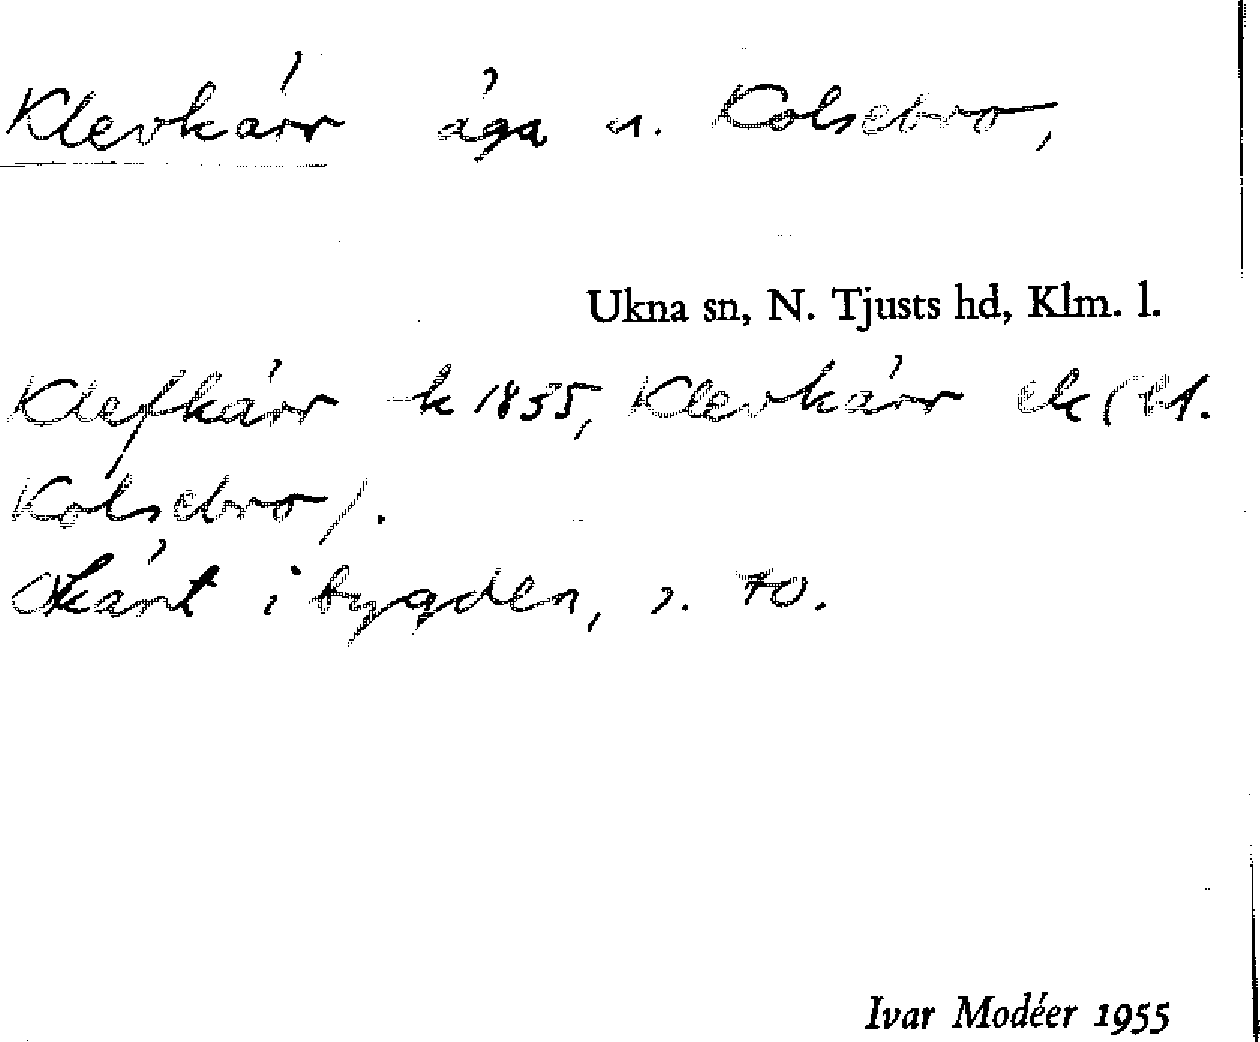 Klevkärr äga u. Kolsebro,
Ukna sn, N. Tjusts hd, Klm. l.
Klefkärr k 1855, Klevkärr ek (u.
Kolsebro).
Okänt i bygden, s. 70.
Ivar Modéer 1955